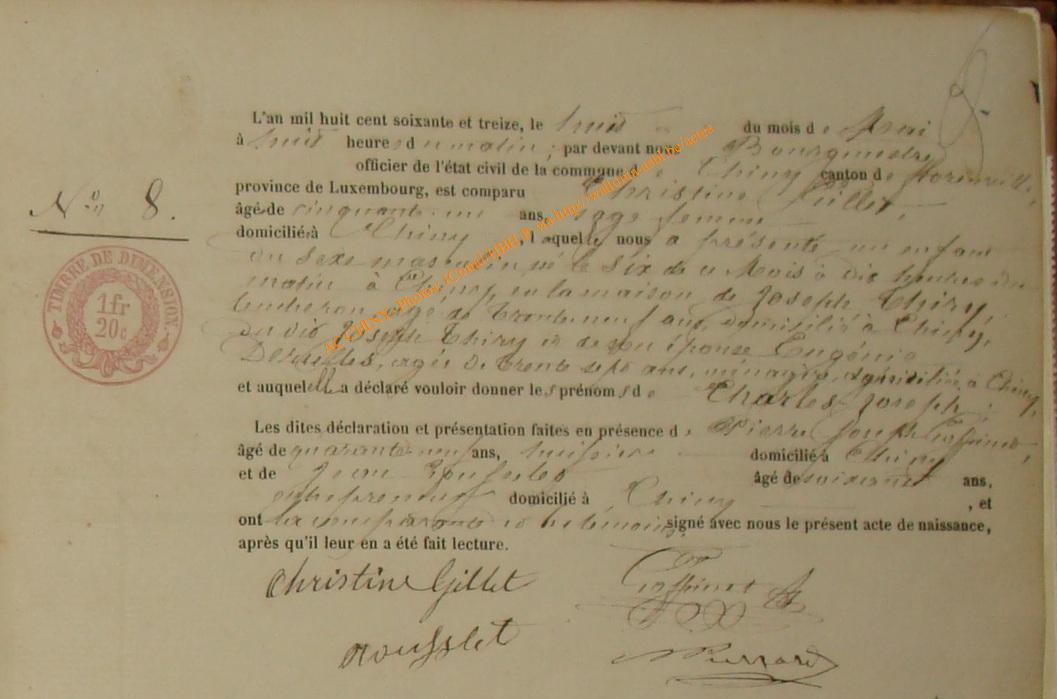 8.
L'an mil huit cent soixante et treize, le huit du mois de Mai
à huit heures du matin ; par devant nous Bourgmestre
officier de l'état civil de la commune de Chiny canton de Florenville
province de Luxembourg, est comparu Christine Gillet,
âgée de cinquante un ans, sage femme
domiciliée à Chiny, laquelle nous a présenté un enfant
du sexe masculin né le six de ce Mois à dix heures du
matin à Chiny, en la maison de Joseph Thiry,
âgé de trente neuf ans, domicilié à Chiny,
du dit Joseph Thiry et de son épouse Eugénie
âgée de trente sept ans, ménagère, domiciliée à Chiny,
et auquel elle a déclaré vouloir donner les prénoms de Charles Joseph ;
Les dites déclaration et présentation faites en présence de Pierre Joseph Goffinet,
âgé de quarante neuf ans, domicilié à Chiny
et de Jean âgé de soixante ans,
entrepreneur domicilié à Chiny, et
ont la comparante et les témoins signé avec nous le présent acte de naissance,
après qu'il leur en a été fait lecture.
Christine Gillet
Goffinet
Rousslet
Pierrard
No 8.
TIMBRE DE DIMENSION.
1fr
20c